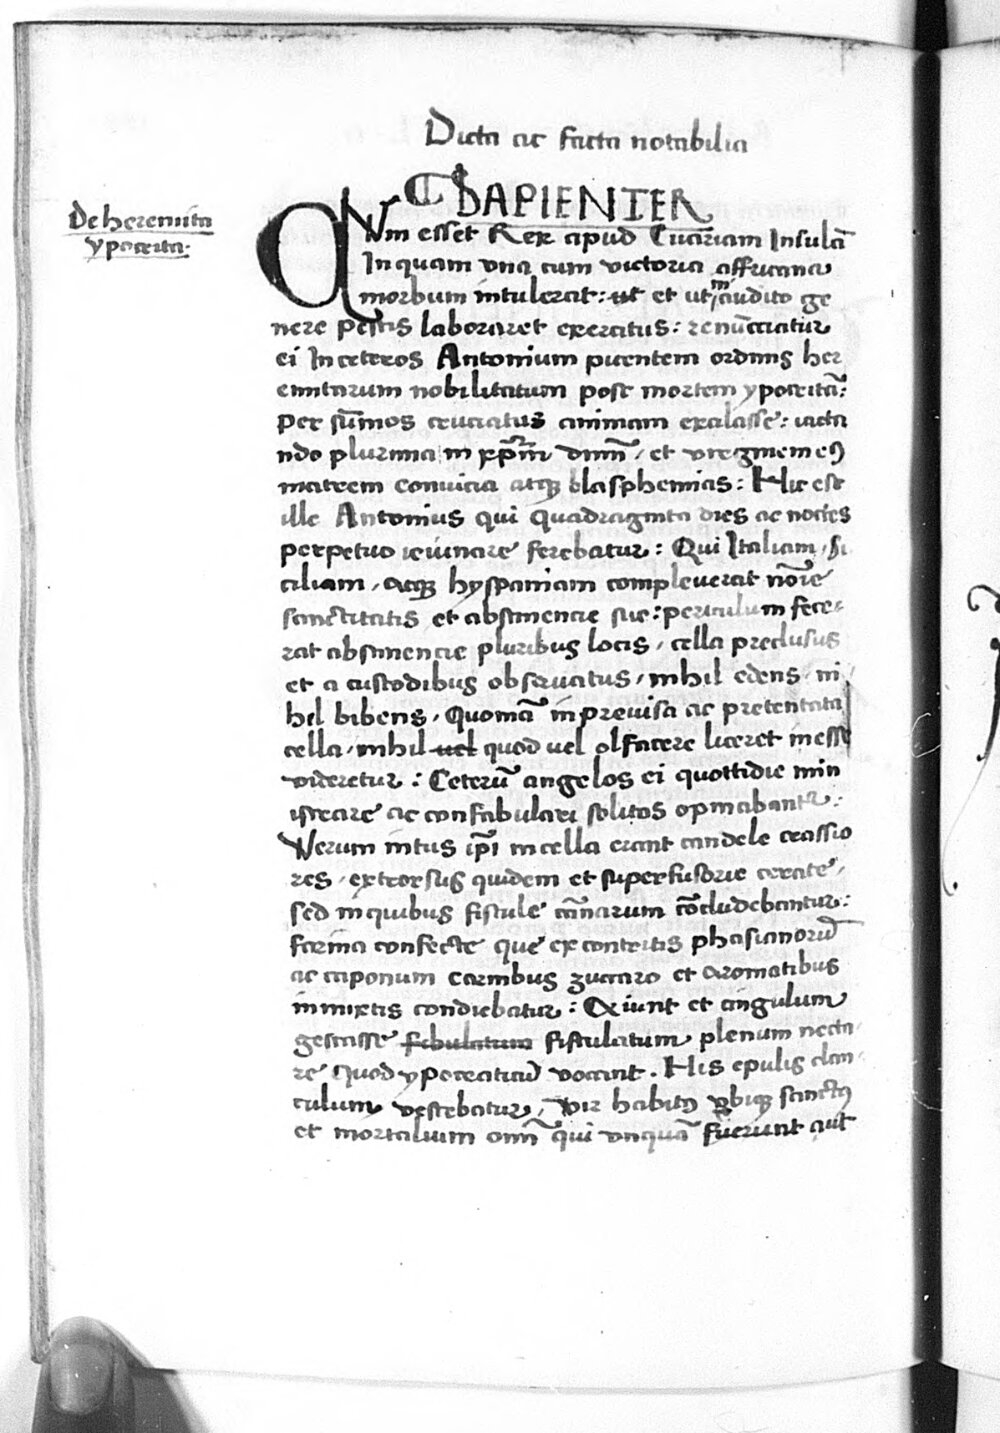 Dicta ac facta notabilia
De heremita
ypocrita.
SAPIENTER
QVm esset Rex apud Cucuriam Insulā
In quam vna cum victoria affricana
morbum intulerat: ut et audito ge
nere pestis laboraret exercitus: renūciatur
ei Inceteros Antonium putentem ordinis her
emitarum nobilitatum post mortem ypocritā:
per sūmos cruciatus animam exalasse: iacta
ndo plurima in xp̄m dnm̄, et virginem eꝰ
matrem convicia atqꝫ blasphemias: Hic est
ille Antonius qui quadraginta dies ac noctes
perpetuo ieiunare ferebatur: Qui Italiam, Si
ciliam, atqꝫ hyspaniam compleuerat nōīe
sanctitatis et abstinencie sue: periculum fece
rat abstinencie pluribus locis, cella preclusus
et a custodibus obseruatus, nihil edens, ni
hil bibens, quomā inprevisa ac pretentata
cella, nihil uel quod uel olfacere liceret inesse
videretur: Ceterū angelos ei quottidie min
istrare ac confabulari solitos opinabantur:
Verum intus ip̄i in cella erant candele crassio
res, extrorsus quidem et superfusorie cerate,
sed in quibus fistule cānarum cōcludebantur:
farina confecte que ex contritis phasianorū
ac caponum carnibus zuccaro et aromatibus
inmixtis condiebatur: Aiunt et cingulum
gestasse fibulatum fistulatum plenum necta
re Quod ypocraticū vocant. His epulis clan
culum vescebatur, vir habitꝰ vrbiqꝫ sanctꝰ
et mortalium omn̄ qui vnquā fuerunt aut